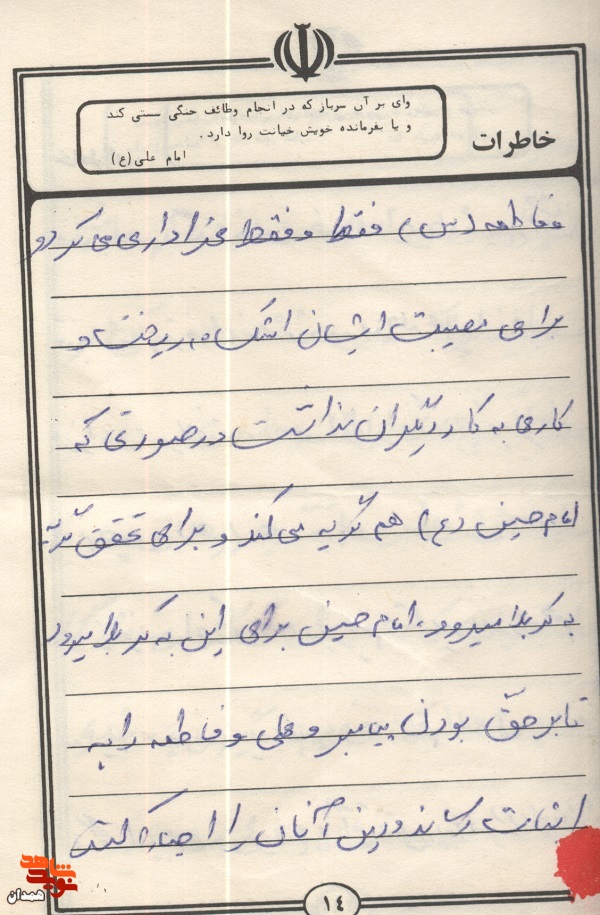 وای بر آن سرباز که در انجام وظائف جنگی سستی کند
و یا بفرمانده خویش خیانت روا دارد .
امام علی (ع)
خاطرات
فاطمه (س) فقط و فقط عزاداری می کرد و
برای مصیبت ایشان اشک می ریخت و
کاری به کار دیگران نداشت در صورتی که
امام حسین (ع) هم گریه می کند و برای تحقق گریه
به کربلا میرود، امام حسین برای این به کربلا میرود
تا بر حق بودن پیامبر و علی و فاطمه را به
اثبات رساند و دین آنان را احیاء کند
۱۴
شاهد
نوید
همدان